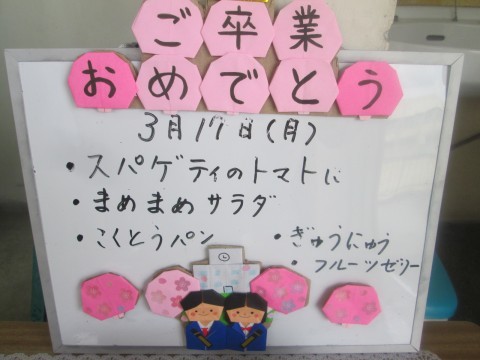 ご卒業
おめでとう
3月17日(月)
・スパゲティのトマトに
・まめまめサラダ
・こくとうパン
・ぎゅうにゅう
・フルーツゼリー